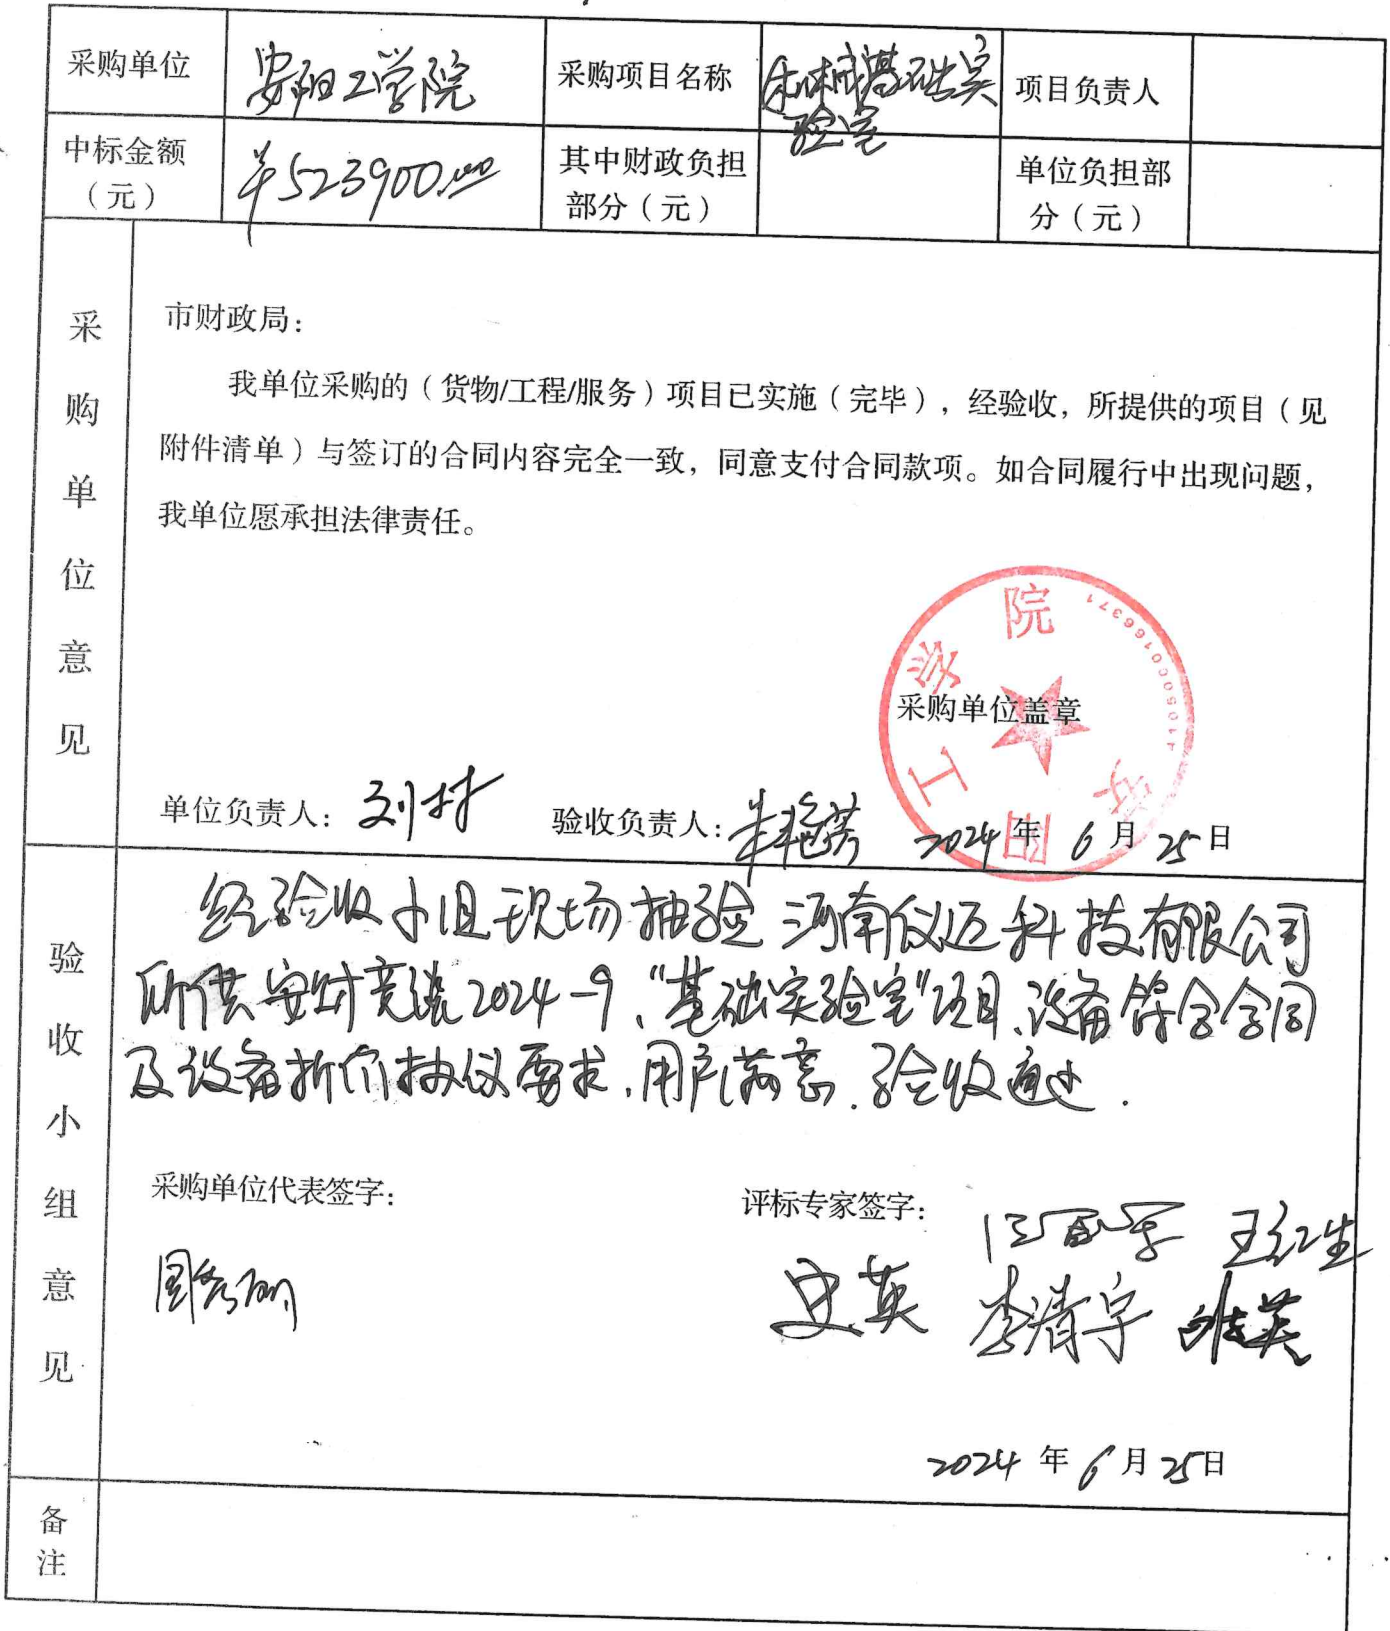 采购单位 安阳工学院 采购项目名称 机械基础实验室 项目负责人
中标金额（元） ￥523900.00 其中财政负担部分（元） 单位负担部分（元）
采购单位意见
市财政局：
我单位采购的（货物/工程/服务）项目已实施（完毕），经验收，所提供的项目（见
附件清单）与签订的合同内容完全一致，同意支付合同款项。如合同履行中出现问题，
我单位愿承担法律责任。
安阳工学院
4105000166371
采购单位盖章
单位负责人： 验收负责人： 2024年6月25日
验收小组意见
经验收小组现场抽验河南仪迈科技有限公司
所供安财竞谈2024-9、“基础实验室”项目、设备符合合同
及设备折价协议要求，用户满意．验收通过．
采购单位代表签字： 评标专家签字：
王红生
史英 李清宇
2024年6月25日
备注